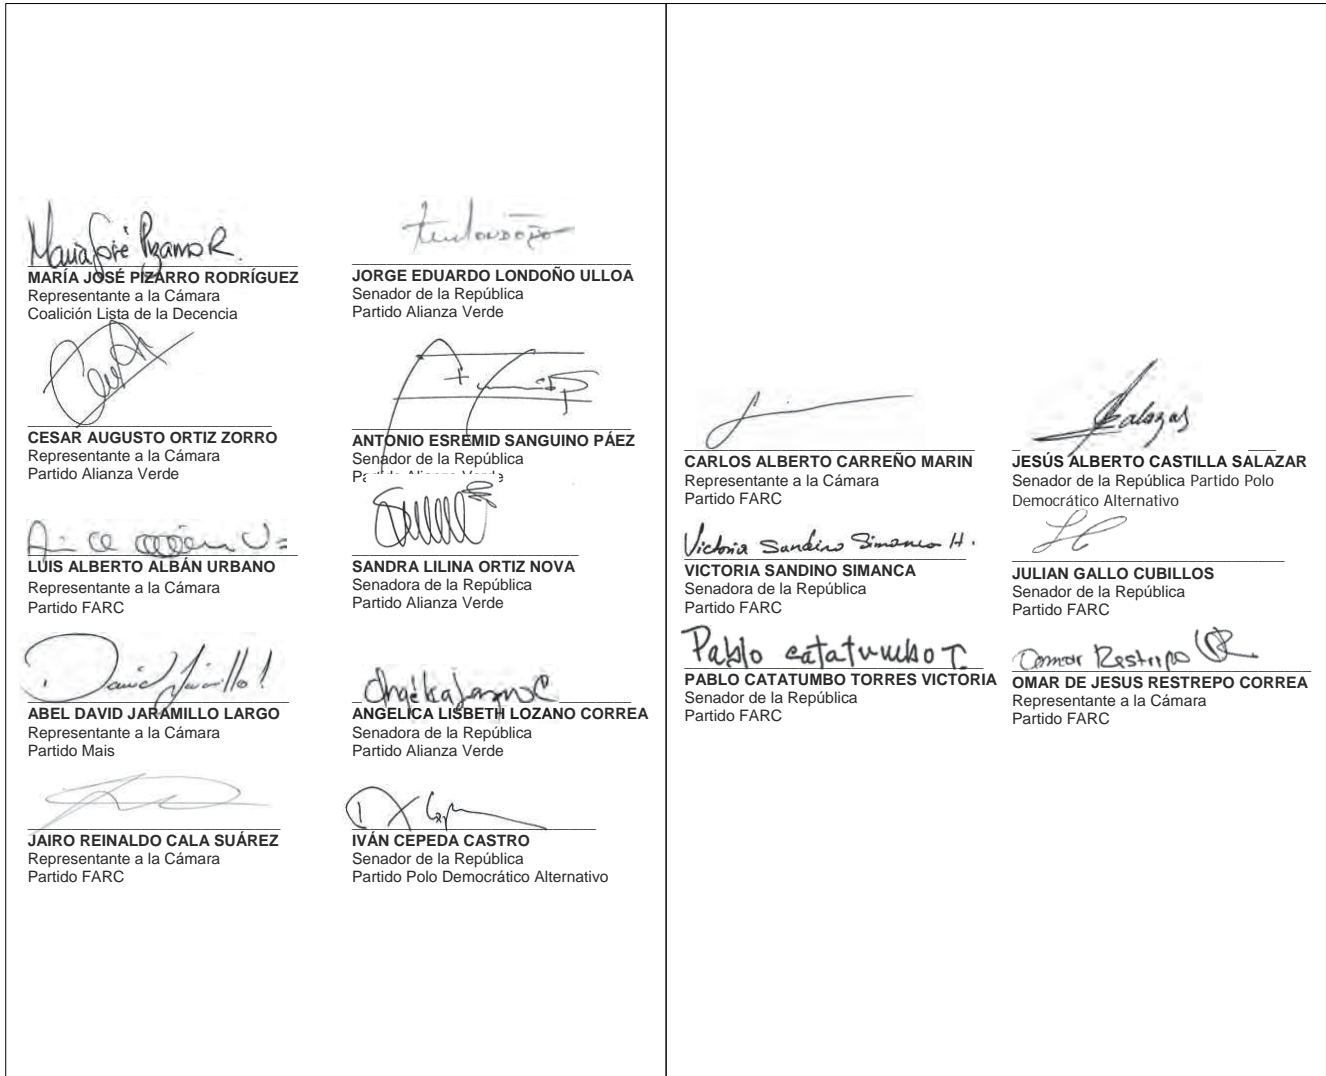 María José Pizarro R.
MARÍA JOSÉ PIZARRO RODRÍGUEZ
Representante a la Cámara
Coalición Lista de la Decencia
CESAR AUGUSTO ORTIZ ZORRO
Representante a la Cámara
Partido Alianza Verde
LUIS ALBERTO ALBÁN URBANO
Representante a la Cámara
Partido FARC
David Jaramillo
ABEL DAVID JARAMILLO LARGO
Representante a la Cámara
Partido Mais
JAIRO REINALDO CALA SUÁREZ
Representante a la Cámara
Partido FARC
Londoño
JORGE EDUARDO LONDOÑO ULLOA
Senador de la República
Partido Alianza Verde
ANTONIO ESREMID SANGUINO PÁEZ
Senador de la República
Partido Alianza Verde
SANDRA LILINA ORTIZ NOVA
Senadora de la República
Partido Alianza Verde
Angélica Lozano C
ANGELICA LISBETH LOZANO CORREA
Senadora de la República
Partido Alianza Verde
IVÁN CEPEDA CASTRO
Senador de la República
Partido Polo Democrático Alternativo
CARLOS ALBERTO CARREÑO MARIN
Representante a la Cámara
Partido FARC
Victoria Sandino Simanca H.
VICTORIA SANDINO SIMANCA
Senadora de la República
Partido FARC
Pablo Catatumbo T.
PABLO CATATUMBO TORRES VICTORIA
Senador de la República
Partido FARC
Salazar
JESÚS ALBERTO CASTILLA SALAZAR
Senador de la República Partido Polo
Democrático Alternativo
JULIAN GALLO CUBILLOS
Senador de la República
Partido FARC
Omar Restrepo
OMAR DE JESUS RESTREPO CORREA
Representante a la Cámara
Partido FARC